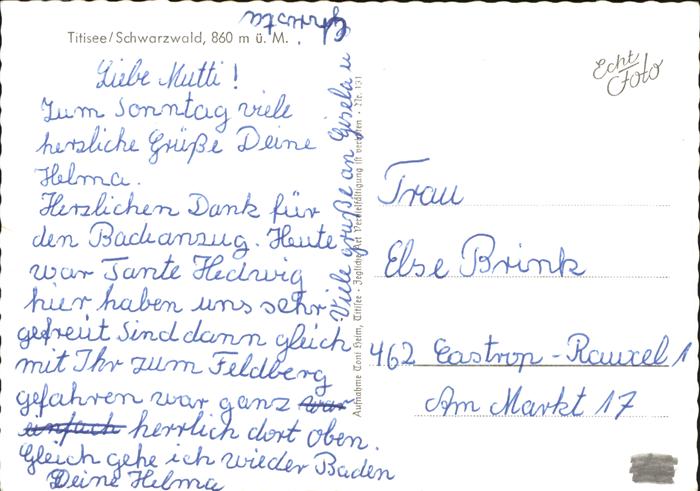 Titisee/Schwarzwald, 860 m ü. M.
Liebe Mutti!
Zum Sonntag viele
herzliche Grüße Deine
Helma.
Herzlichen Dank für
den Badeanzug. Heute
war Tante Hedwig
hier haben uns sehr
gefreut sind dann gleich
mit Ihr zum Feldberg
gefahren war ganz war
einfach herrlich dort oben.
Gleich gehe ich wieder Baden
Deine Helma
Viele grüße an Gisela u
Christa
Aufnahme Toni Helm, Titisee - Jegliche Art Vervielfältigung ist verboten - Nr. 131
Echt
Foto
Frau
Else Brink
462 Castrop-Rauxel 1
Am Markt 17